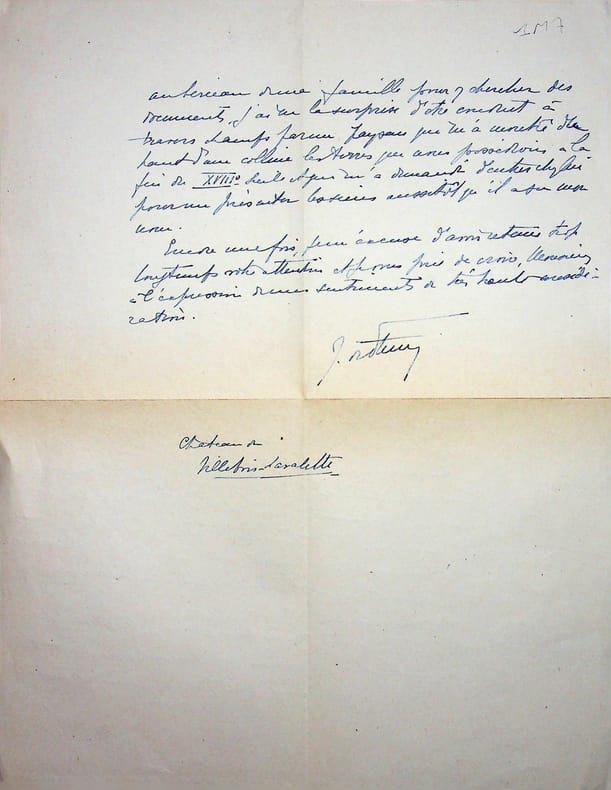 1M7
au berceau de ma famille pour y chercher des
documents, j'ai eu la surprise d'être conduit à
travers champs par un paysan qui m'a montré du
haut d'une colline les terres que nous possédions à la
fin du XVIIIe siècle et qui m'a demandé d'entrer chez lui
pour me présenter les siens aussitôt qu'il a su mon
nom.
Encore une fois, je m'excuse d'avoir retenu trop
longtemps votre attention et je vous prie de croire, Monsieur
à l'expression de mes sentiments de très haute considé-
ration.
J. de
Chateau de
Villebois-Lavalette